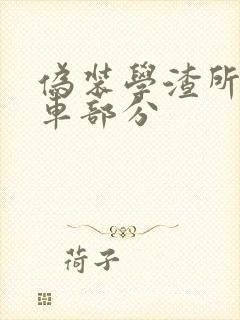 偽裝學渣所
車部分
荷子